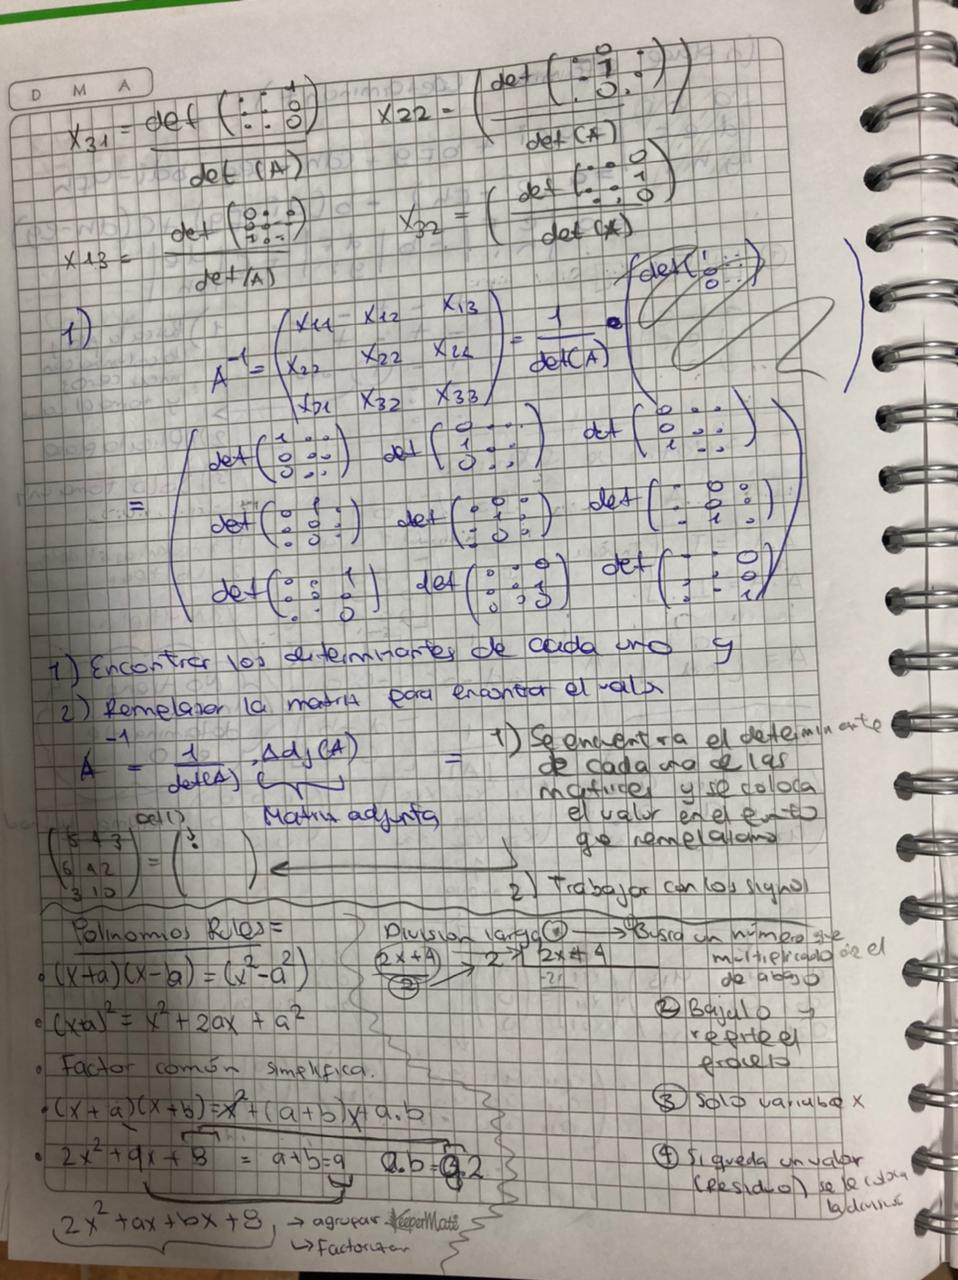 D M A
X31 = det (: : 1 / . . 0 / . . 0) / det (A)
X22 = (det (. 0 . / . 1 . / . 0 .) / det (A))
X13 = det (0 . . / 0 . . / 1 . .) / det (A)
X32 = (det (. . 0 / . . 1 / . . 0) / det (A))
1)
A^-1 = (X11 - X12 X13 / X22 X22 X21 / X31 X32 X33) = 1 / det(A) •
= (det (1 . . / 0 . . / 0 . .) det (0 . . / 1 . . / 0 . .) det (0 . . / 0 . . / 1 . .)
det (. 1 . / . 0 . / . 0 .) det (. 0 . / . 1 . / . 0 .) det (. 0 . / . 0 . / . 1 .)
det (. . 1 / . . 0 / . . 0) det (. . 0 / . . 1 / . . 0) det (. . 0 / . . 0 / . . 1))
1) Encontrar los determinantes de cada uno y
2) Remelazar la matriz para encontrar el valor
A^-1 = 1 / det(A) . Adj(A) =
Matriz adjunta
1) Se encuentra el determinante
de cada una de las
matrices y se coloca
el valor en el
2) Trabajar con los signos
Polinomios Rules =
• (x+a)(x-a) = (x²-a²)
• (x+a)² = x² + 2ax + a²
• Factor común simplifica.
• (x+a)(x+b) = x² + (a+b)x + a.b
• 2x² + 9x + 8 = a+b=9 a.b=8.2
2x² + ax + bx + 8 → agrupar
↳ Factorizar
KeeperMate
División larga ① → Busca un número que
multiplicado de el
de abajo
(2x+4) / 2 → 2 | 2x+4
② Bajalo y
repite el
proceso
③ Solo variable x
④ Si queda un valor
(Residuo) se le coloca